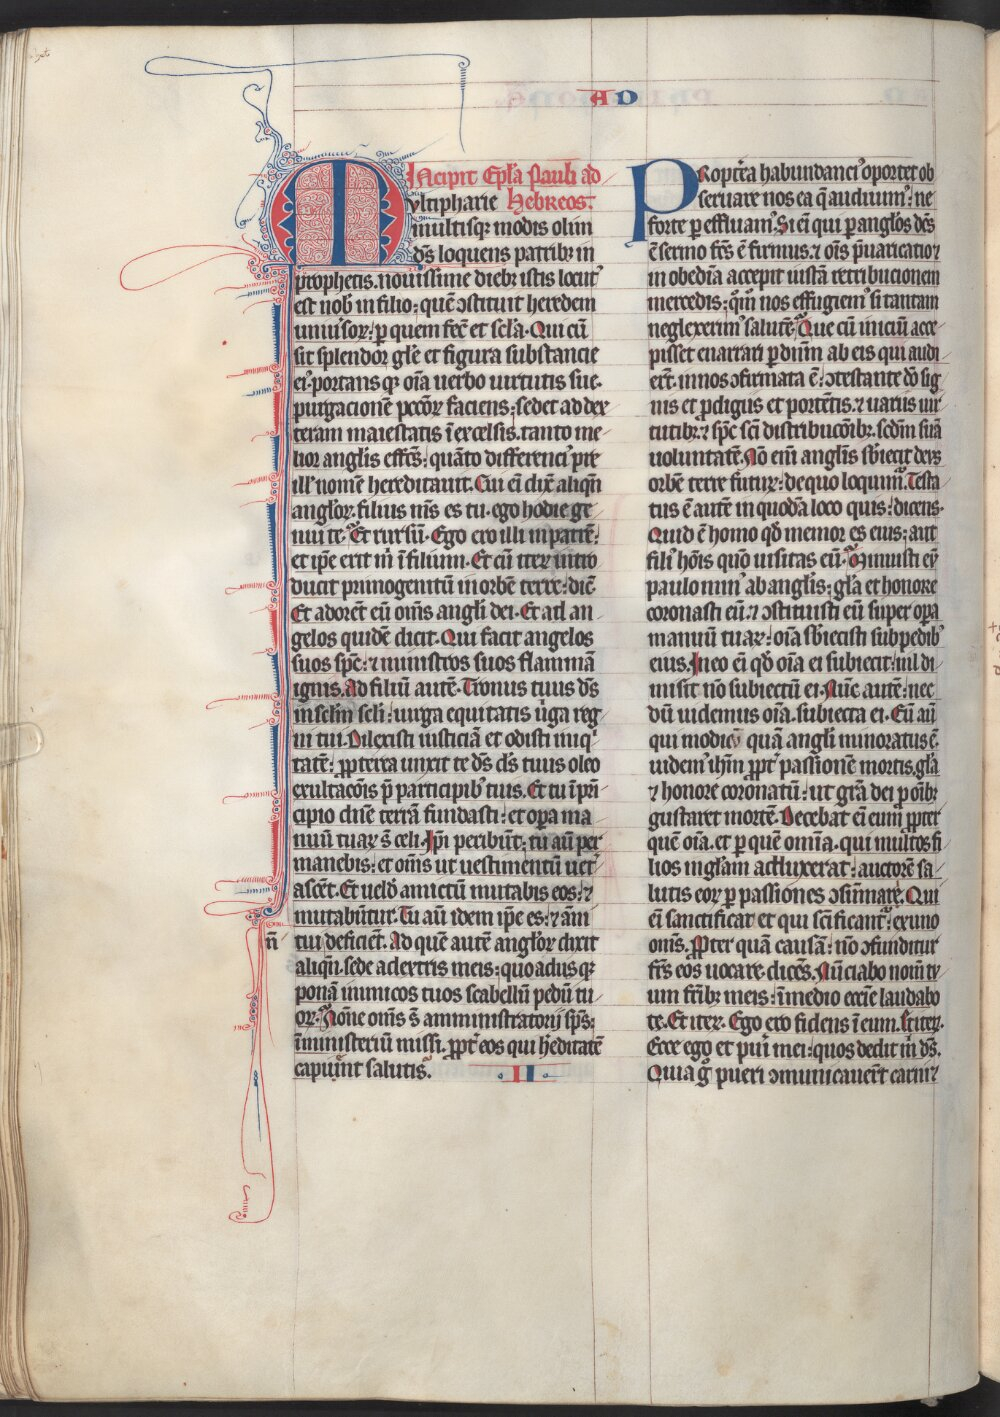 AD
Incipit Epl̃a pauli ad
Multipharie Hebreos.
multisqꝫ modis olim
dẽs loquens patribꝫ in
prophetis. nouissime diebꝫ istis locut᷒
est nob̃ in filio: quẽ ↄstituit heredem
uniu᷒soꝝ: ꝑ quem fec̃ et scl̃a. Qui cũ
sit splendor gl̃e et figura substancie
ei᷒ portans qꝫ oĩa uerbo uirtutis sue.
purgacionẽ pccõꝝ faciens: sedet ad dex
teram maiestatis ĩ excelsis. tanto me
lior angl̃is eff̃cs: quãto differenci᷒ pre
ill᷒ nomẽ hereditauit. Cui eĩ dix̃ aliqñ
angl̃oꝝ. filius m̃s es tu. ego hodie ge
nui te. Et rursũ. Ego ero illi in patrẽ:
et ip̃e erit m̃ ĩ filium. Et cũ iteꝝ intro
ducit primogenitũ in orbẽ terre: dic̃.
Et adorẽt eũ om̃s angl̃i dei. Et ad an
gelos quidẽ dicit. Qui facit angelos
suos sp̃c: ⁊ ministros suos flammã
ignis. Ad filiũ autẽ. Tronus tuus dẽs
in sclm̃ scli: uirga equitatis ũga reg
ni tui. Dilexisti iusticiã et odisti iniq᷒
tatẽ: ꝓpterea unxit te dẽs dẽs tuus oleo
exultacõis p̃ participib᷒ tuis. Et tu ĩ pri
cipio dñe terrã fundasti: et oꝑa ma
nuũ tuaꝝ s̃ celi. Ip̃i peribũt: tu aũ per
manebis: et om̃s ut uestimentũ uet᷒
ascẽt. Et uelð amictũ mutabis eos: ⁊
mutabũtur. Tu aũ idem ip̃e es: ⁊ ãni
tui ñ deficiẽt. Ad quẽ autẽ angl̃oꝝ dixit
aliqñ. sede a dextris meis: quoadusqꝫ
ponã inimicos tuos scabellũ pedũ tu
oꝝ. Nõne om̃s s̃ amministratorij sp̃s:
ĩ ministeriũ missi. ꝓpt̃ eos qui h̃editatẽ
capiũnt salutis.
.II.
Propt̃ea habundanci᷒ oportet ob
seruare nos ea q̃ audiuim᷒: ne
forte ꝑeffluam᷒. Si eĩ qui ꝑ angl̃os dc̃s
ẽ sermo fc̃s ẽ firmus. ⁊ oĩs p̃uaricatio ⁊
inobedĩa accepit iustã retribucionem
mercedis: qm̃ nos effugiem᷒ si tantam
neglexerim᷒ salutẽ. Que cũ iniciũ acce
pisset enarrari ꝑ dñm ab eis qui audi
ert̃. in nos ↄfirmata ẽ: ↄtestante dõ sig
nis et ꝓdigiis et portẽtis. ⁊ uariis uir
tutibꝫ. ⁊ sp̃c sc̃i distribucõibꝫ. scdm̃ suã
uoluntatẽ. Nõ eni angl̃is sb̃iecit deꝰs
orbẽ terre futuꝝ: de quo loquim᷒. Testa
tus ẽ autẽ in quodã loco quis: dicens.
Quid ẽ homo qð memor es eius: aut
fili᷒ hõis quõ uisitas eũ. Minuisti eũ
paulo min᷒ ab angl̃is: gl̃a et honore
coronasti eũ. ⁊ ↄstituisti eũ super oꝑa
manuũ tuaꝝ: oĩa sb̃iecisti sub pedib᷒
eius. In eo eĩ qð oĩa ei subiecit: nil di
misit nõ subiectũ ei. Nũc autẽ: nec
dũ uidemus oĩa. subiecta ei. Eũ aũ
qui modico quã angl̃i minoratus ẽ.
uidem᷒ ih̃m ꝓpt̃ passionẽ mortis. gl̃a
⁊ honore coronatũ: ut gr̃a dei ꝓ oĩbꝫ
gustaret mortẽ. Decebat eĩ eum ꝓpter
quẽ oĩa. et ꝑ quẽ omĩa. qui multos fi
lios in gl̃am adduxerat: auctorẽ sa
lutis eoꝝ ꝑ passiones ↄsũmare. Qui
eĩ sanctificat et qui sc̃ificant᷒: ex uno
om̃s. Pꝓter quã causã: nõ ↄfunditur
fr̃s eos uocare. dicẽs. Nũciabo nom̃ tu
um fr̃ibꝫ meis: ĩ medio ecc̃ie laudabo
te. Et iteꝝ. Ego ero fidens ĩ eum. Et iteꝝ.
Ecce ego et pu᷒i mei: quos dedit m̃ dẽs.
Quia g̃ pueri ↄmunicauer̃t carni ⁊